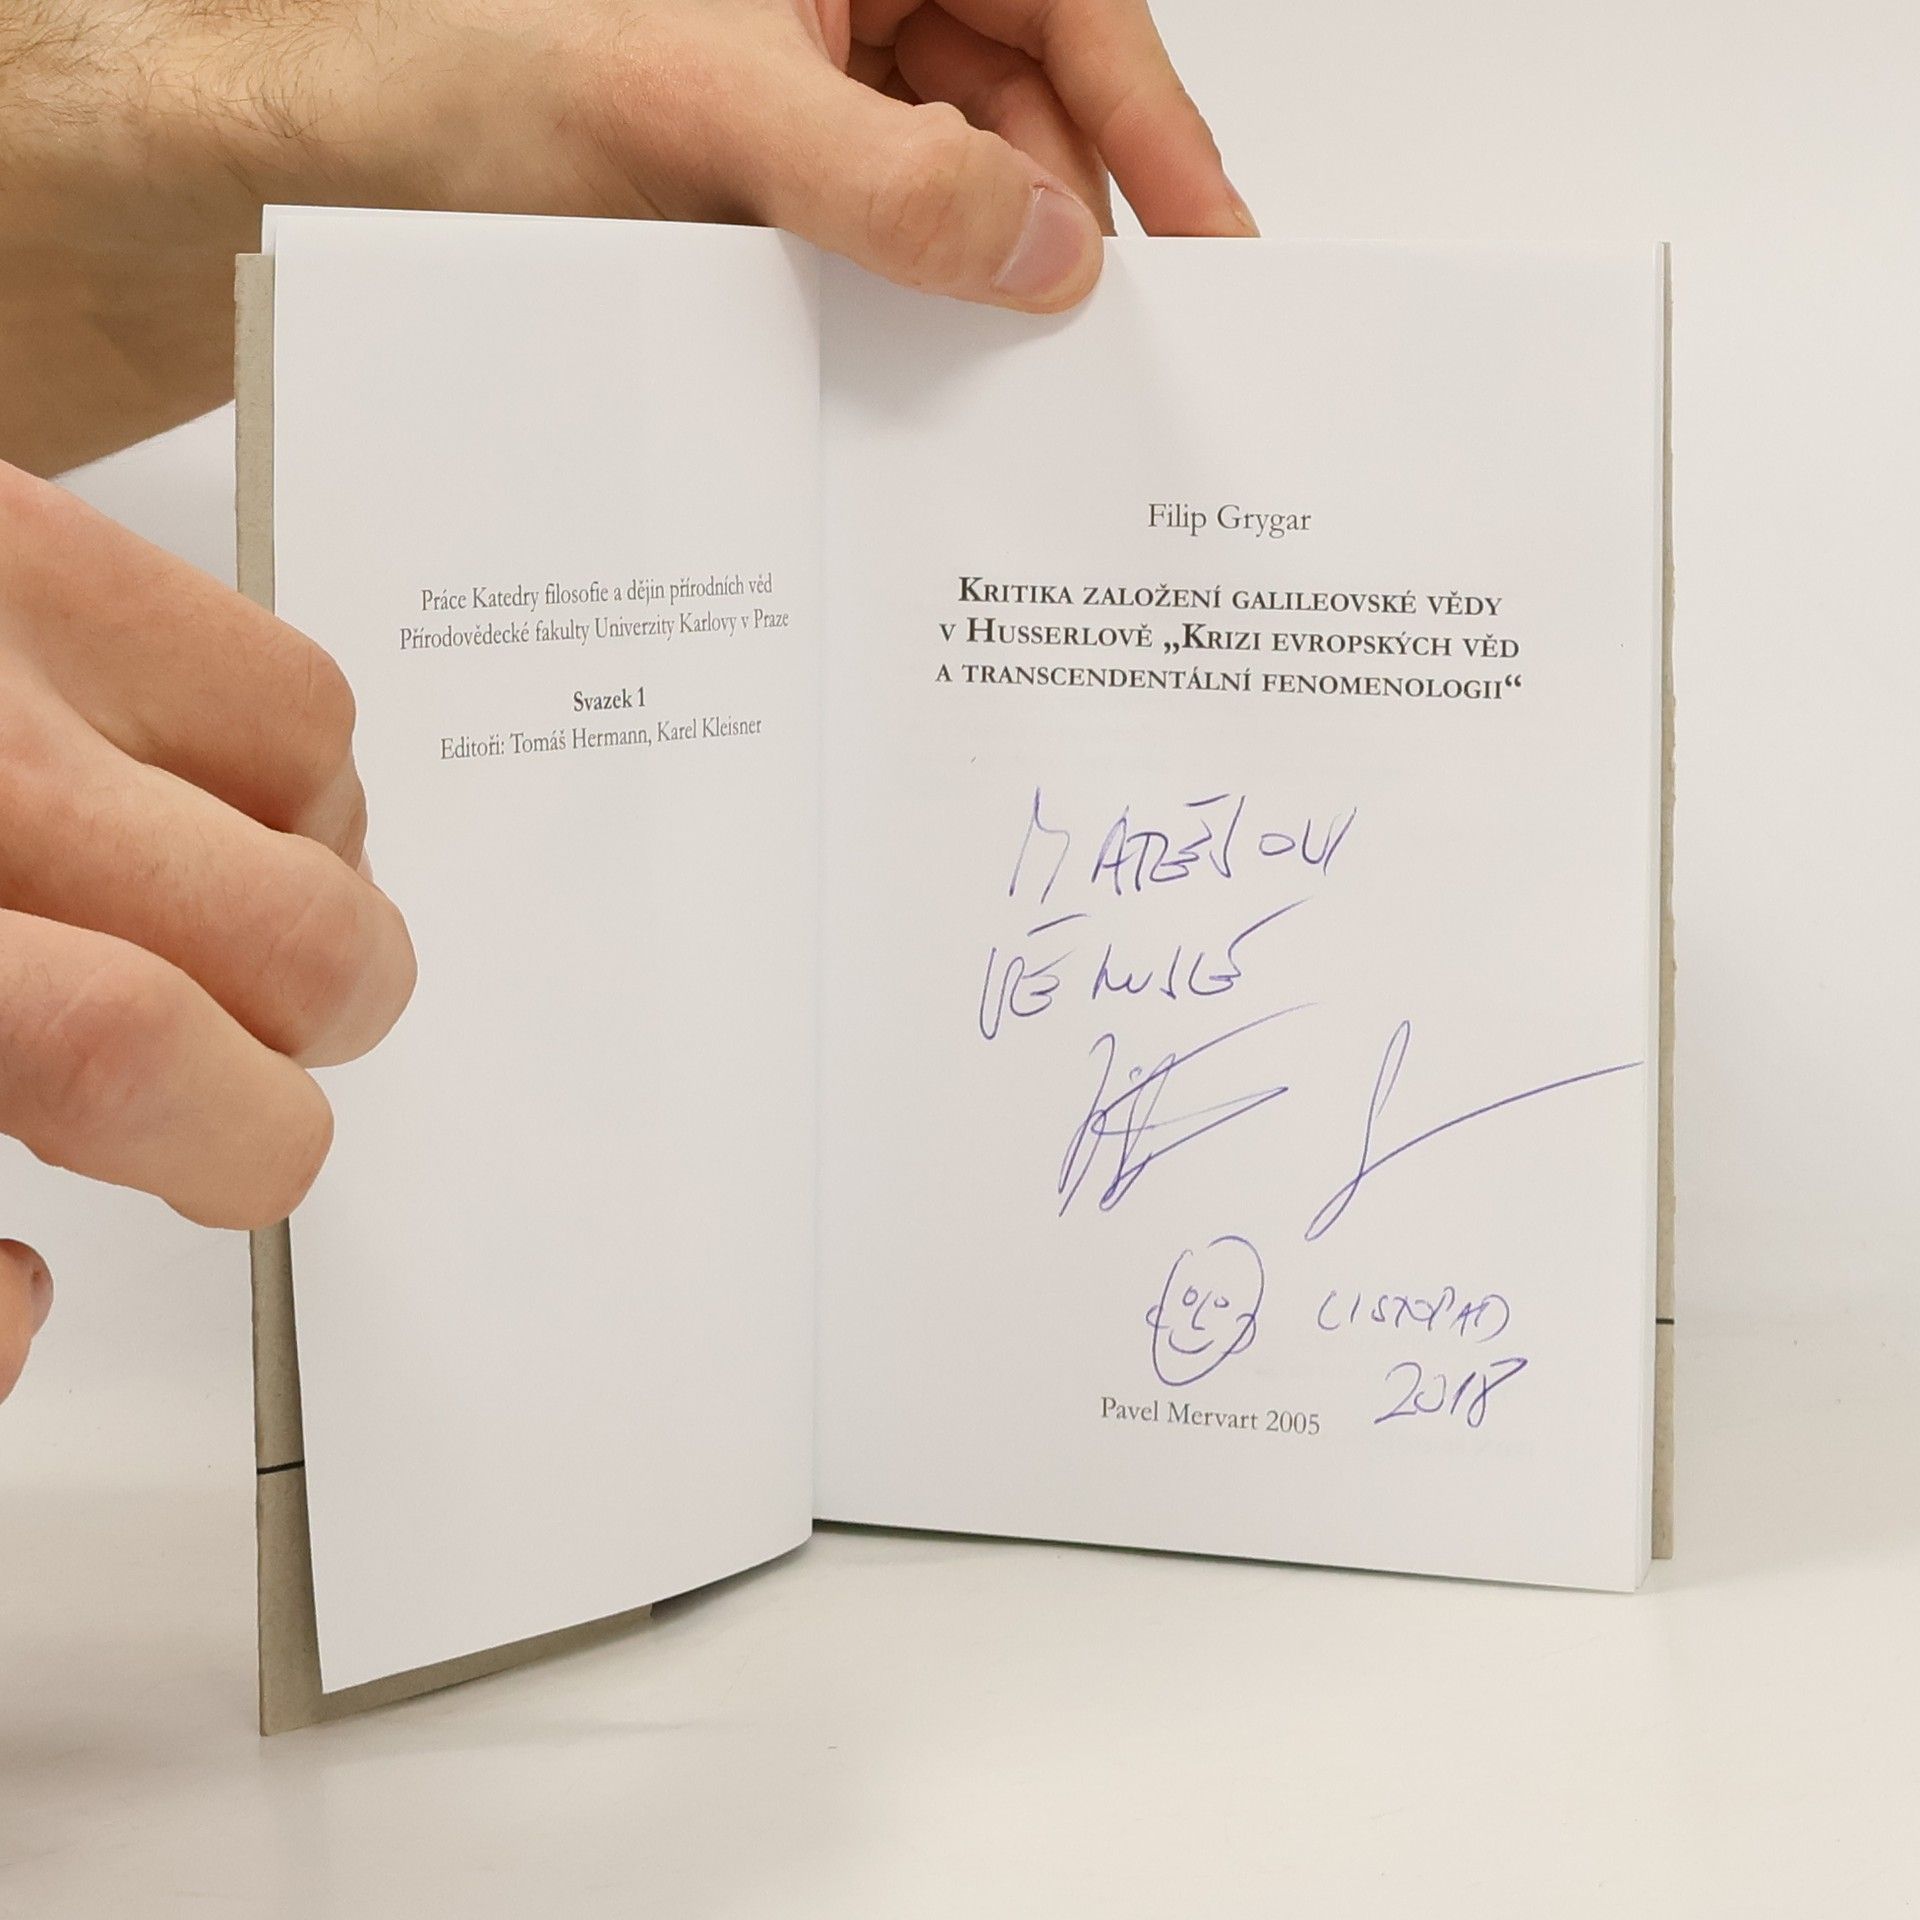 Práce Katedry filosofie a dějin přírodních věd
Přírodovědecké fakulty Univerzity Karlovy v Praze
Svazek 1
Editoři: Tomáš Hermann, Karel Kleisner
Filip Grygar
KRITIKA ZALOŽENÍ GALILEOVSKÉ VĚDY
V HUSSERLOVĚ „KRIZI EVROPSKÝCH VĚD
A TRANSCENDENTÁLNÍ FENOMENOLOGII“
MATĚJOVI
LISTOPAD
2018
Pavel Mervart 2005